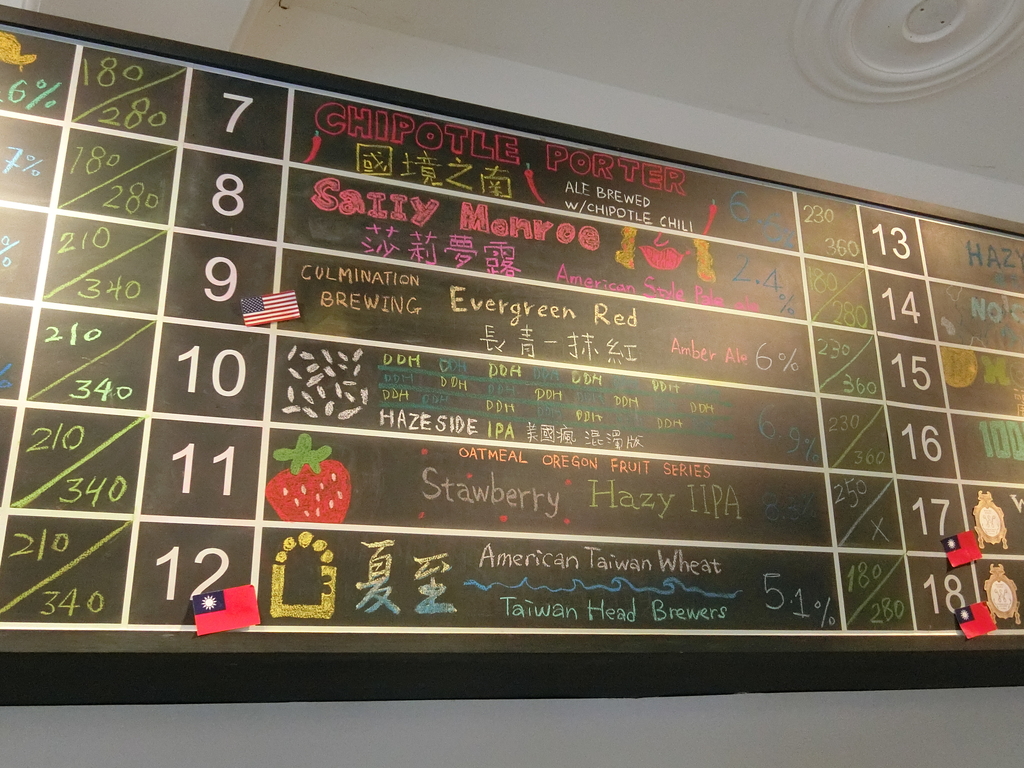 6%
180
280
7
CHIPOTLE PORTER
國境之南
ALE BREWED
W/CHIPOTLE CHILI
230
360
13
HAZY
7%
180
280
8
Sally Monroe
莎莉夢露
American Style Pale ale
2.4%
180
280
14
%
210
340
9
CULMINATION
BREWING
Evergreen Red
長青一抹紅
Amber Ale 6%
230
360
15
210
340
10
DDH DDH DDH DDH DDH
DDH DDH DDH DDH
DDH DDH DDH DDH DDH
DDH DDH DDH
HAZESIDE IPA 美國瘋 混濁版
6.9%
230
360
16
100
210
340
11
OATMEAL OREGON FRUIT SERIES
Stawberry Hazy IIPA
250
X
17
W
210
340
12
夏至
American Taiwan Wheat
Taiwan Head Brewers
5.1%
180
280
18